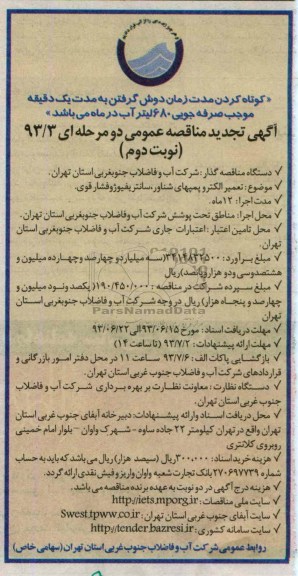 « کوتاه کردن مدت زمان دوش گرفتن به مدت یک دقیقه
موجب صرفه جویی ۶۸۰ لیتر آب در ماه می باشد »
آگهی تجدید مناقصه عمومی دو مرحله ای ۹۳/۳
(نوبت دوم)
✓ دستگاه مناقصه گذار : شرکت آب و فاضلاب جنوبغربی استان تهران.
✓ موضوع : تعمیر الکترو پمپهای شناور، سانتریفیوژ و فشار قوی.
✓ مدت اجرا : ۱۲ ماه.
✓ محل اجرا : مناطق تحت پوشش شرکت آب و فاضلاب جنوبغربی استان تهران.
✓ محل تامین اعتبار : اعتبارات جاری شرکت آب و فاضلاب جنوبغربی استان
تهران.
✓ مبلغ برآورد : (سه میلیارد و چهارصد و چهارده میلیون و
هشتصد و سی و دو هزار و پانصد) ریال
✓ مبلغ سپرده شرکت در مناقصه : ۱۹۰/۴۵۰/۰۰۰ (یکصد و نود میلیون و
چهارصد و پنجاه هزار) ریال در وجه شرکت آب و فاضلاب جنوبغربی استان
تهران
✓ مهلت دریافت اسناد : مورخ ۹۳/۰۶/۱۵ الی ۹۳/۰۶/۲۲
✓ مهلت ارائه پیشنهادات : ۹۳/۷/۲ (تا ساعت ۱۴)
✓ بازگشایی پاکات الف : ۹۳/۷/۶ ساعت ۱۱ در محل دفتر امور بازرگانی و
قراردادهای شرکت آب و فاضلاب جنوب غربی استان تهران.
✓ دستگاه نظارت : معاونت نظارت بر بهره برداری شرکت آب و فاضلاب
جنوب غربی استان تهران.
✓ محل دریافت اسناد وارائه پیشنهادات: دبیرخانه آبفای جنوب غربی استان
تهران واقع در تهران کیلومتر ۲۲ جاده ساوه - شهرک واوان - بلوار امام خمینی
روبروی کلانتری
✓ هزینه خرید اسناد : ۳۰۰،۰۰۰ ریال (سیصد هزار) ریال می باشد که باید به حساب
شماره ۲۷۰۶۹۷۷۳۹ بانک تجارت شعبه واوان واریز و فیش نقدی ارائه گردد.
✓ هزینه درج آگهی در دو نوبت به عهده برنده مناقصه می باشد.
✓ سایت ملی مناقصات : http://iets.mporg.ir
✓ سایت آبفای جنوب غربی استان تهران : Swest.tpww.co.ir
✓ سایت سامانه کشوری : http://tender.bazresi.ir
روابط عمومی شرکت آب و فاضلاب جنوب غربی استان تهران (سهامی خاص)
ParsNamadData